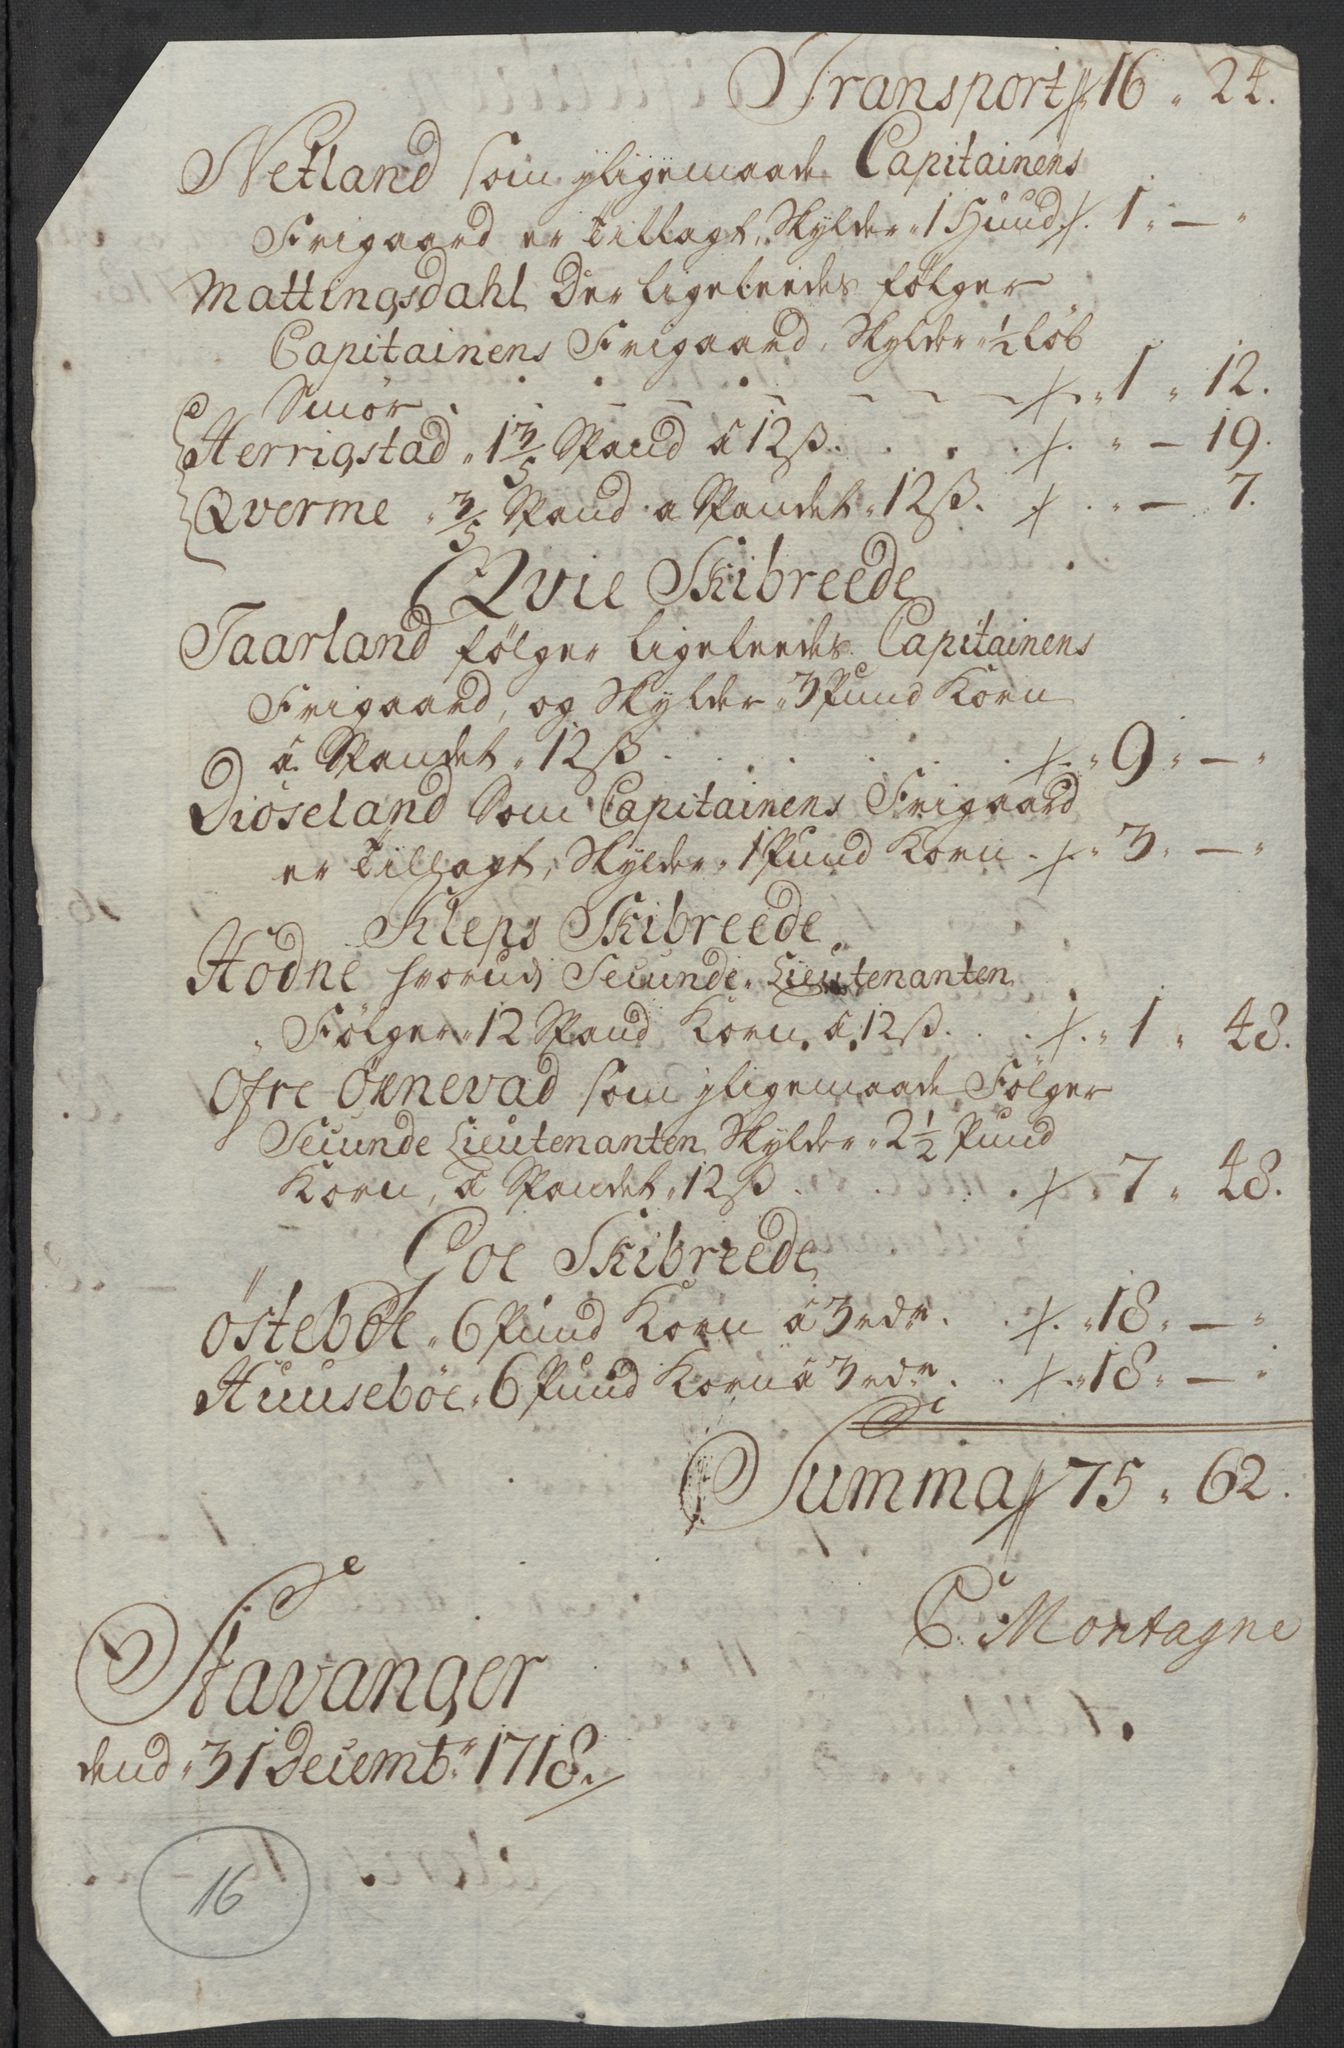 Transport // 16 „ 24.
Netland som jligemaade Capitainens
Frigaard er Tillagt, Skylder „ 1 Huud /. 1 „ — „
Mattingsdahl Der ligeleedes følger
Capitainens Frigaard, Skylder „ ½ Löb
Smör . . . . — — — — — /. „ 1 „ 12.
Herrigstad „ 1 3/5 Spand â 12 ß. . . . /. „ — 19.
Qverme „ 3/5 Spand a Spandet „ 12 ß. /. „ — 7.
Qvie Skibreede
Taarland følger ligeleedes Capitainens
Frigaard, og Skylder „ 3 Pund Korn
â Spandet „ 12 ß . . . . . /. „ 9 „ — „
Diöseland Som Capitainens Frigaard
er Tillagt, Skylder „ 1 Pund Korn . /. „ 3 „ — „
Kleps Skibreede
Hödne hvorudj Secunde Lieutenanten
Fölger „ 12 Spand Korn â 12 ß. . . /. „ 1 „ 48.
Öfre Öxnevad som jligemaade Fölger
Secunde Lieutenanten Skylder „ 2½ Pund
Korn, â Spandet „ 12 ß . . . . /. 7 „ 48.
Goe Skibreede
Östeböe „ 6 Pund Korn â 3 rdr. . /. „ 18 „ — „
Huuseböe „ 6 Pund Korn â 3 rdr . . /. „ 18 „ — „
Summa // 75 „ 62.
C. Montagne
Stavanger
dend „ 31 Decembr 1718.
16